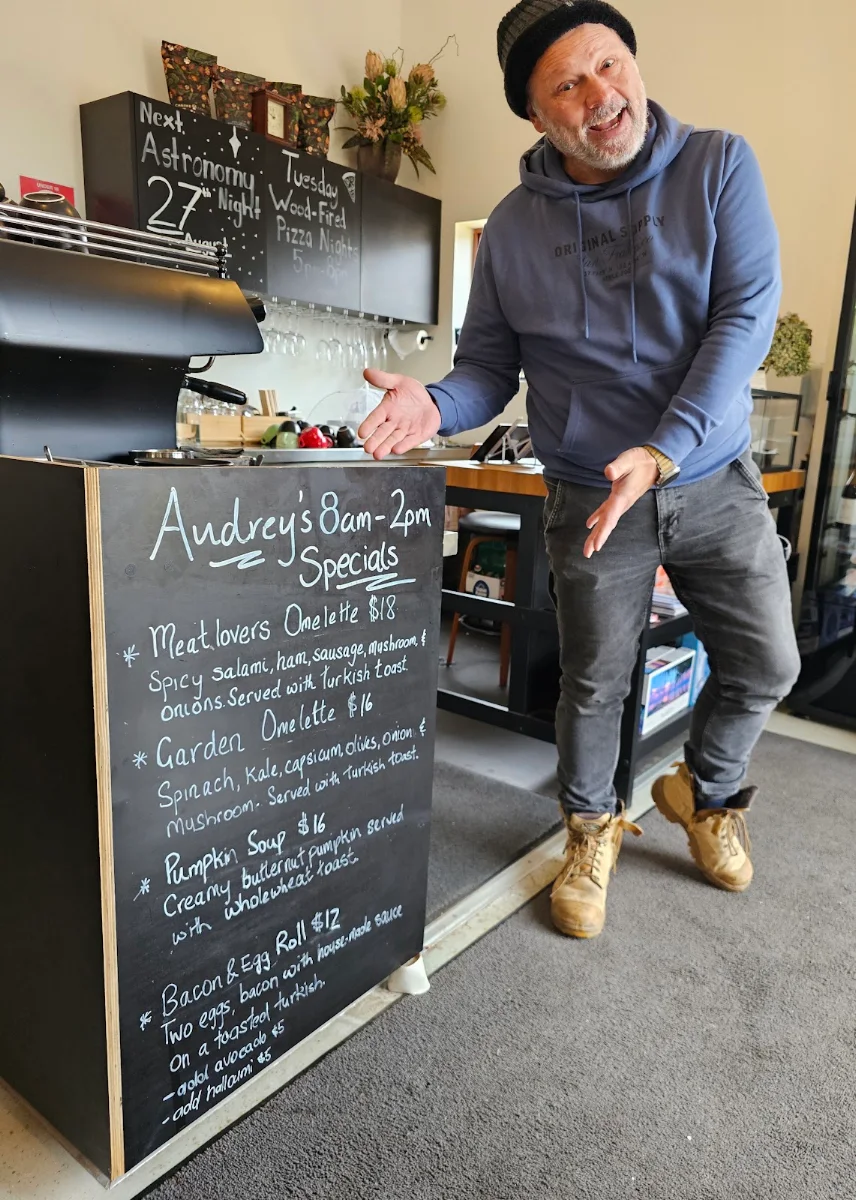 Next
Astronomy
Night
27th
August
Tuesday
Wood-Fired
Pizza Nights
5pm-8pm
ORIGINAL SUPPLY
Audrey's 8am-2pm
Specials
* Meatlovers Omelette $18
Spicy salami, ham, sausage, mushroom, &
onions. Served with Turkish toast.
* Garden Omelette $16
Spinach, Kale, capsicum, olives, onion &
mushroom. Served with Turkish toast.
* Pumpkin Soup $16
Creamy butternut pumpkin served
with wholewheat toast.
* Bacon & Egg Roll $12
Two eggs, bacon with house-made sauce
on a toasted turkish.
- add avocado $5
- add halloumi $5